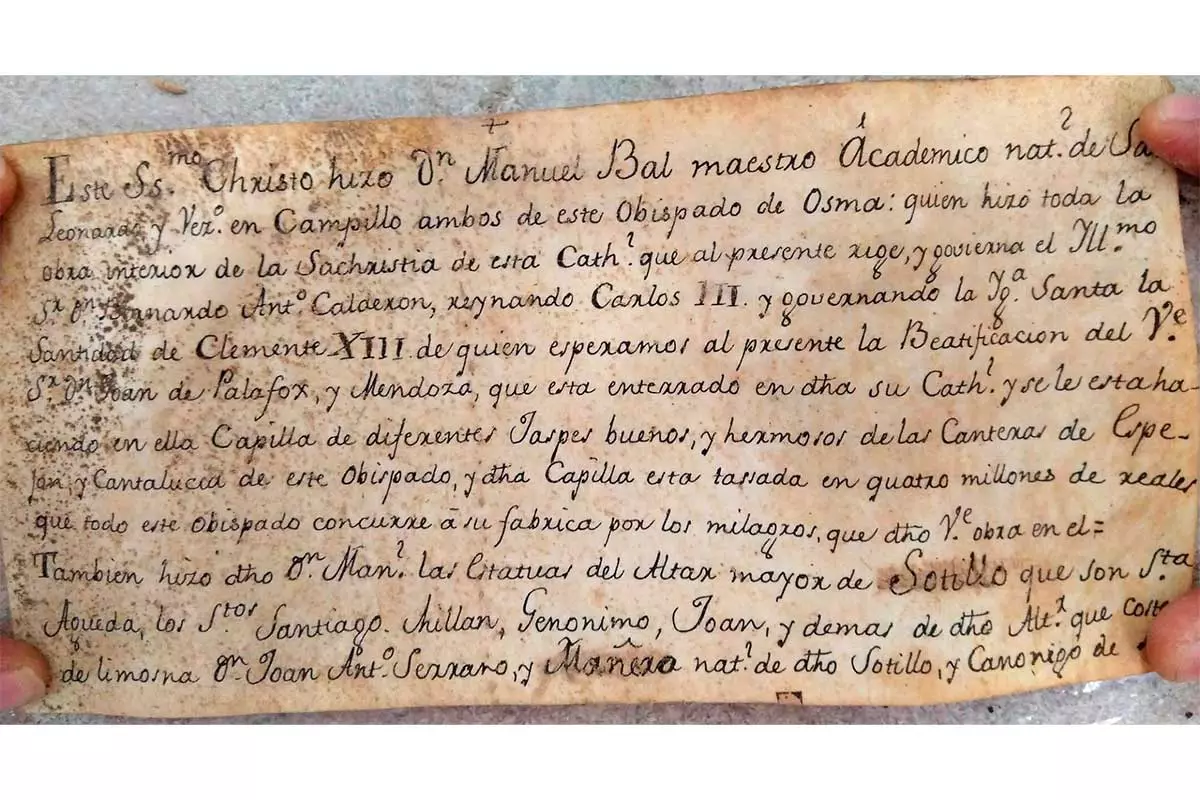 +
Este Ss.mo Christo hizo Dn Manuel Bal maestro Académico nat.l de Sa
Leonardo y Vez.o en Campillo ambos de este Obispado de Osma: quien hizo toda la
obra interior de la Sachristia de esta Cath.l que al presente rige, y govierna el Ill.mo
S.r Dn Bernardo Ant.o Calderon, reynando Carlos III. y governando la Ig.a Santa la
Santidad de Clemente XIII. de quien esperamos al presente la Beatificacion del V.e
S.r Dn Joan de Palafox, y Mendoza, que esta enterrado en dha su Cath.l y se le esta ha-
ciendo en ella Capilla de diferentes Jaspes buenos, y hermosos de las Canteras de Espe-
jon, y Cantalucia de este Obispado, y dha Capilla esta tassada en quatro millones de reales
que todo este Obispado concurre â su fabrica por los milagros, que dho V.e obra en el=
Tambien hizo dho Dn Man.l las Estatuas del Altar mayor de Sotillo que son S.ta
Agueda, los S.tos Santiago. Millan, Geronimo, Joan, y demas de dho Alt.r que costeo
de limosna Dn Joan Ant.o Serrano, y Mañero nat.l de dho Sotillo, y Canonigo de